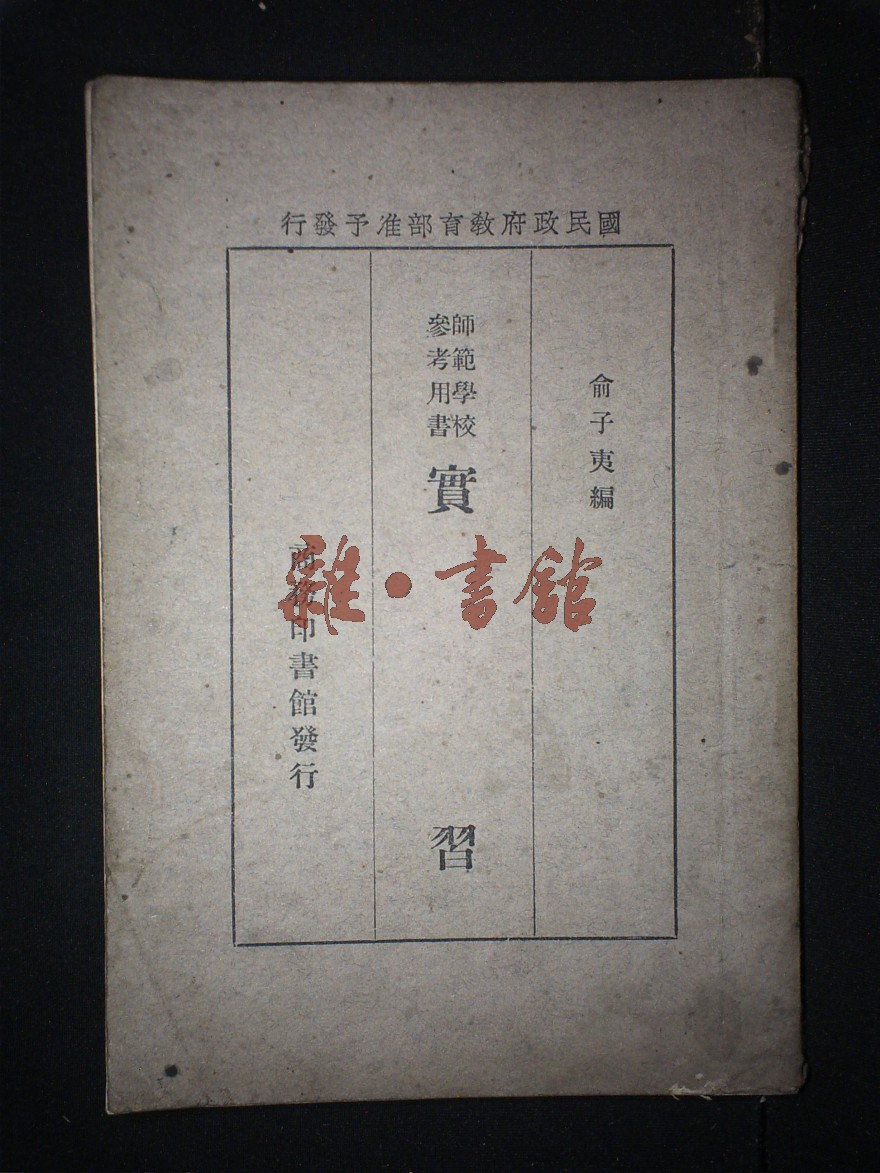 國民政府教育部准予發行
俞子夷編
師範學校
參考用書
實習
商務印書館發行
雜·書館